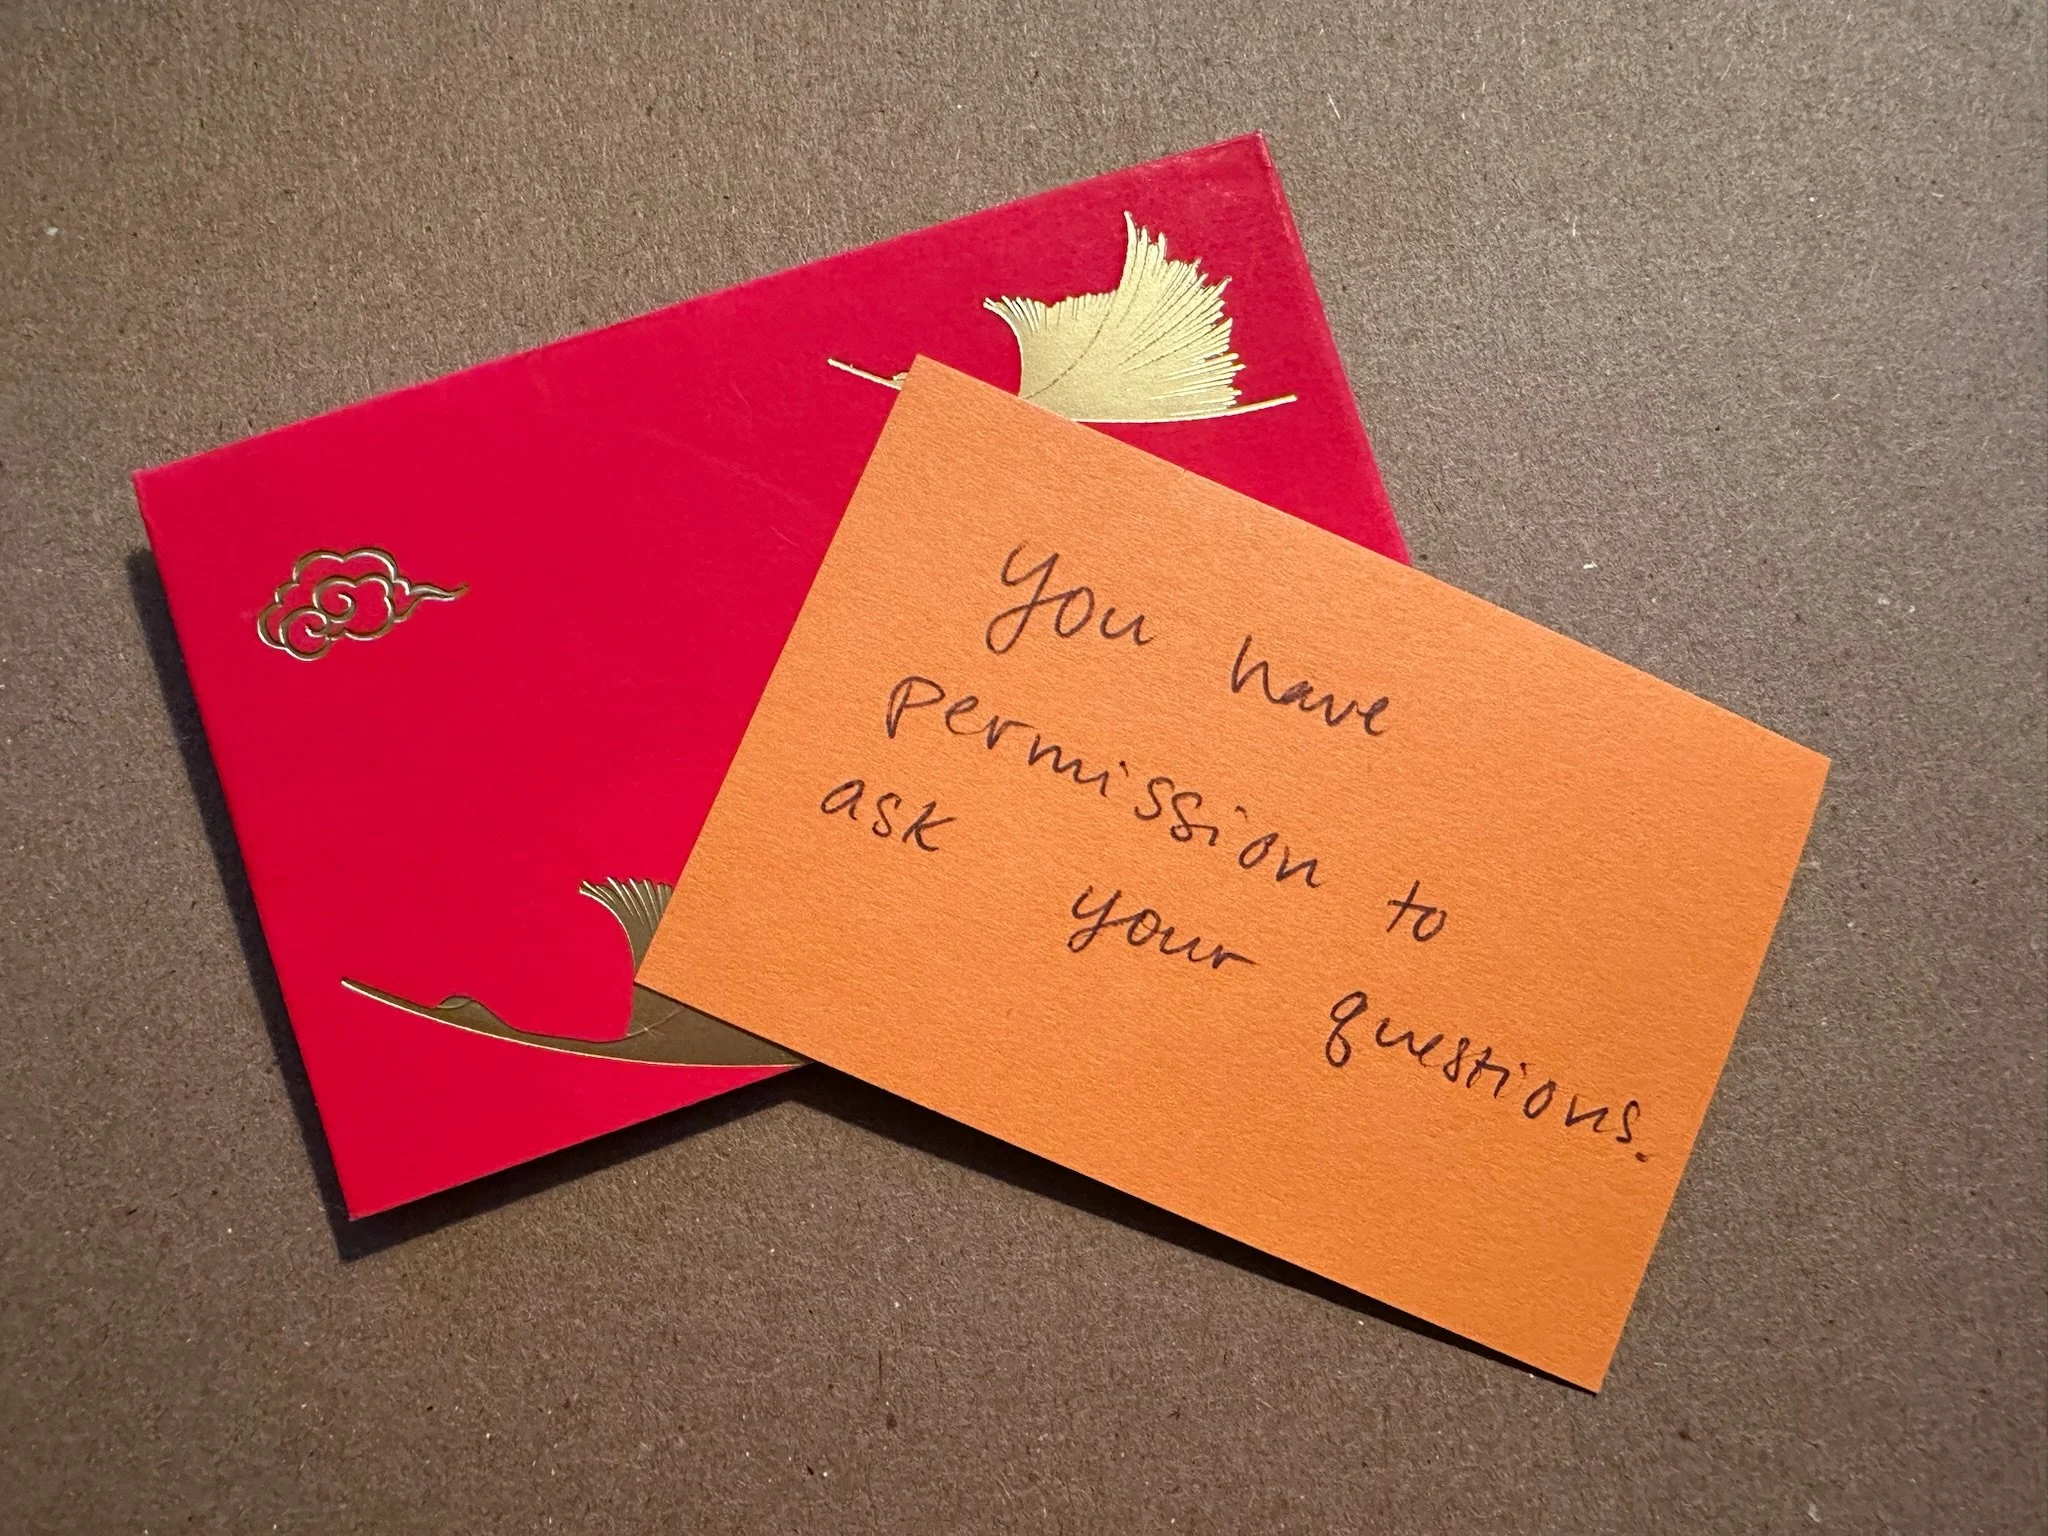 you have
permission to
ask your questions.